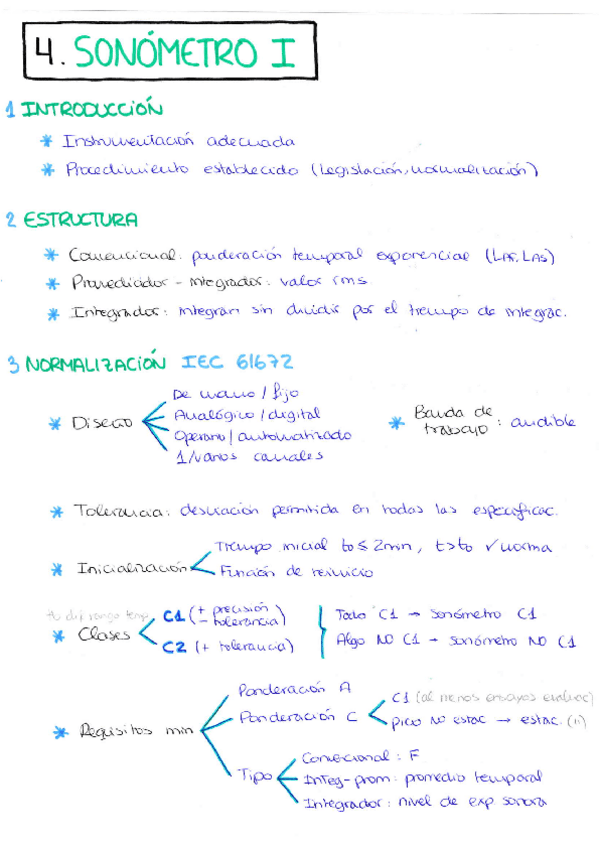 4. SONÓMETRO I
1 INTRODUCCIÓN
* Instrumentación adecuada
* Procedimiento establecido (legislación, normalización)
2 ESTRUCTURA
* Convencional: ponderación temporal exponencial (LAF, LAS)
* Promediador - integrador: valor rms
* Integrador: integran sin dividir por el tiempo de integrac.
3 NORMALIZACIÓN IEC 61672
* Diseño
De mano / fijo
Analógico / digital
Operario / automatizado
1/varios canales
* Banda de trabajo : audible
* Tolerancia: desviación permitida en todas las especificac.
* Inicialización
Tiempo inicial to ≤ 2min, t>to ✓ norma
Función de reinicio
* Clases
C1 (+ precisión - tolerancia)
C2 (+ tolerancia)
Todo C1 → sonómetro C1
Algo NO C1 → sonómetro NO C1
* Requisitos min
Ponderación A
Ponderación C
C1 (al menos ensayos evaluac)
pico NO estac → estac. (II)
Tipo
Convencional : F
Integ-prom: promedio temporal
Integrador: nivel de exp sonora